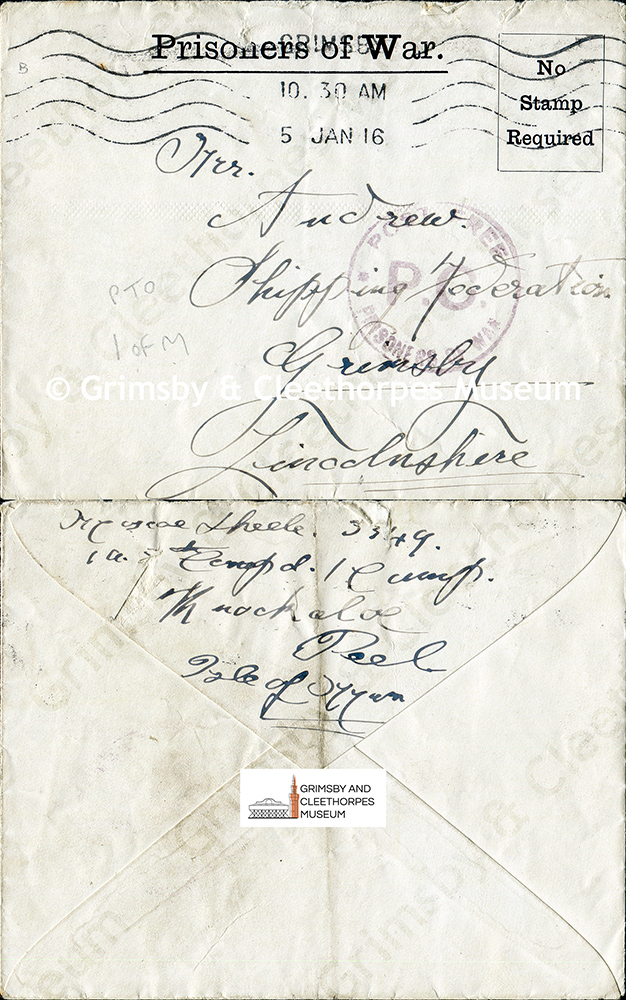 Prisoners of War.
GRIMSBY
10. 30 AM
5 JAN 16
No
Stamp
Required
B
Mr.
Andrew.
Shipping Federation
Grimsby
Lincolnshere
POST FREE
P.C.
PRISONERS OF WAR
PTO
1 of M
© Grimsby & Cleethorpes Museum
Theele 3349.
Compd. 1 Camp.
Knockaloe
Peel
Isle of Man
GRIMSBY AND
CLEETHORPES
MUSEUM